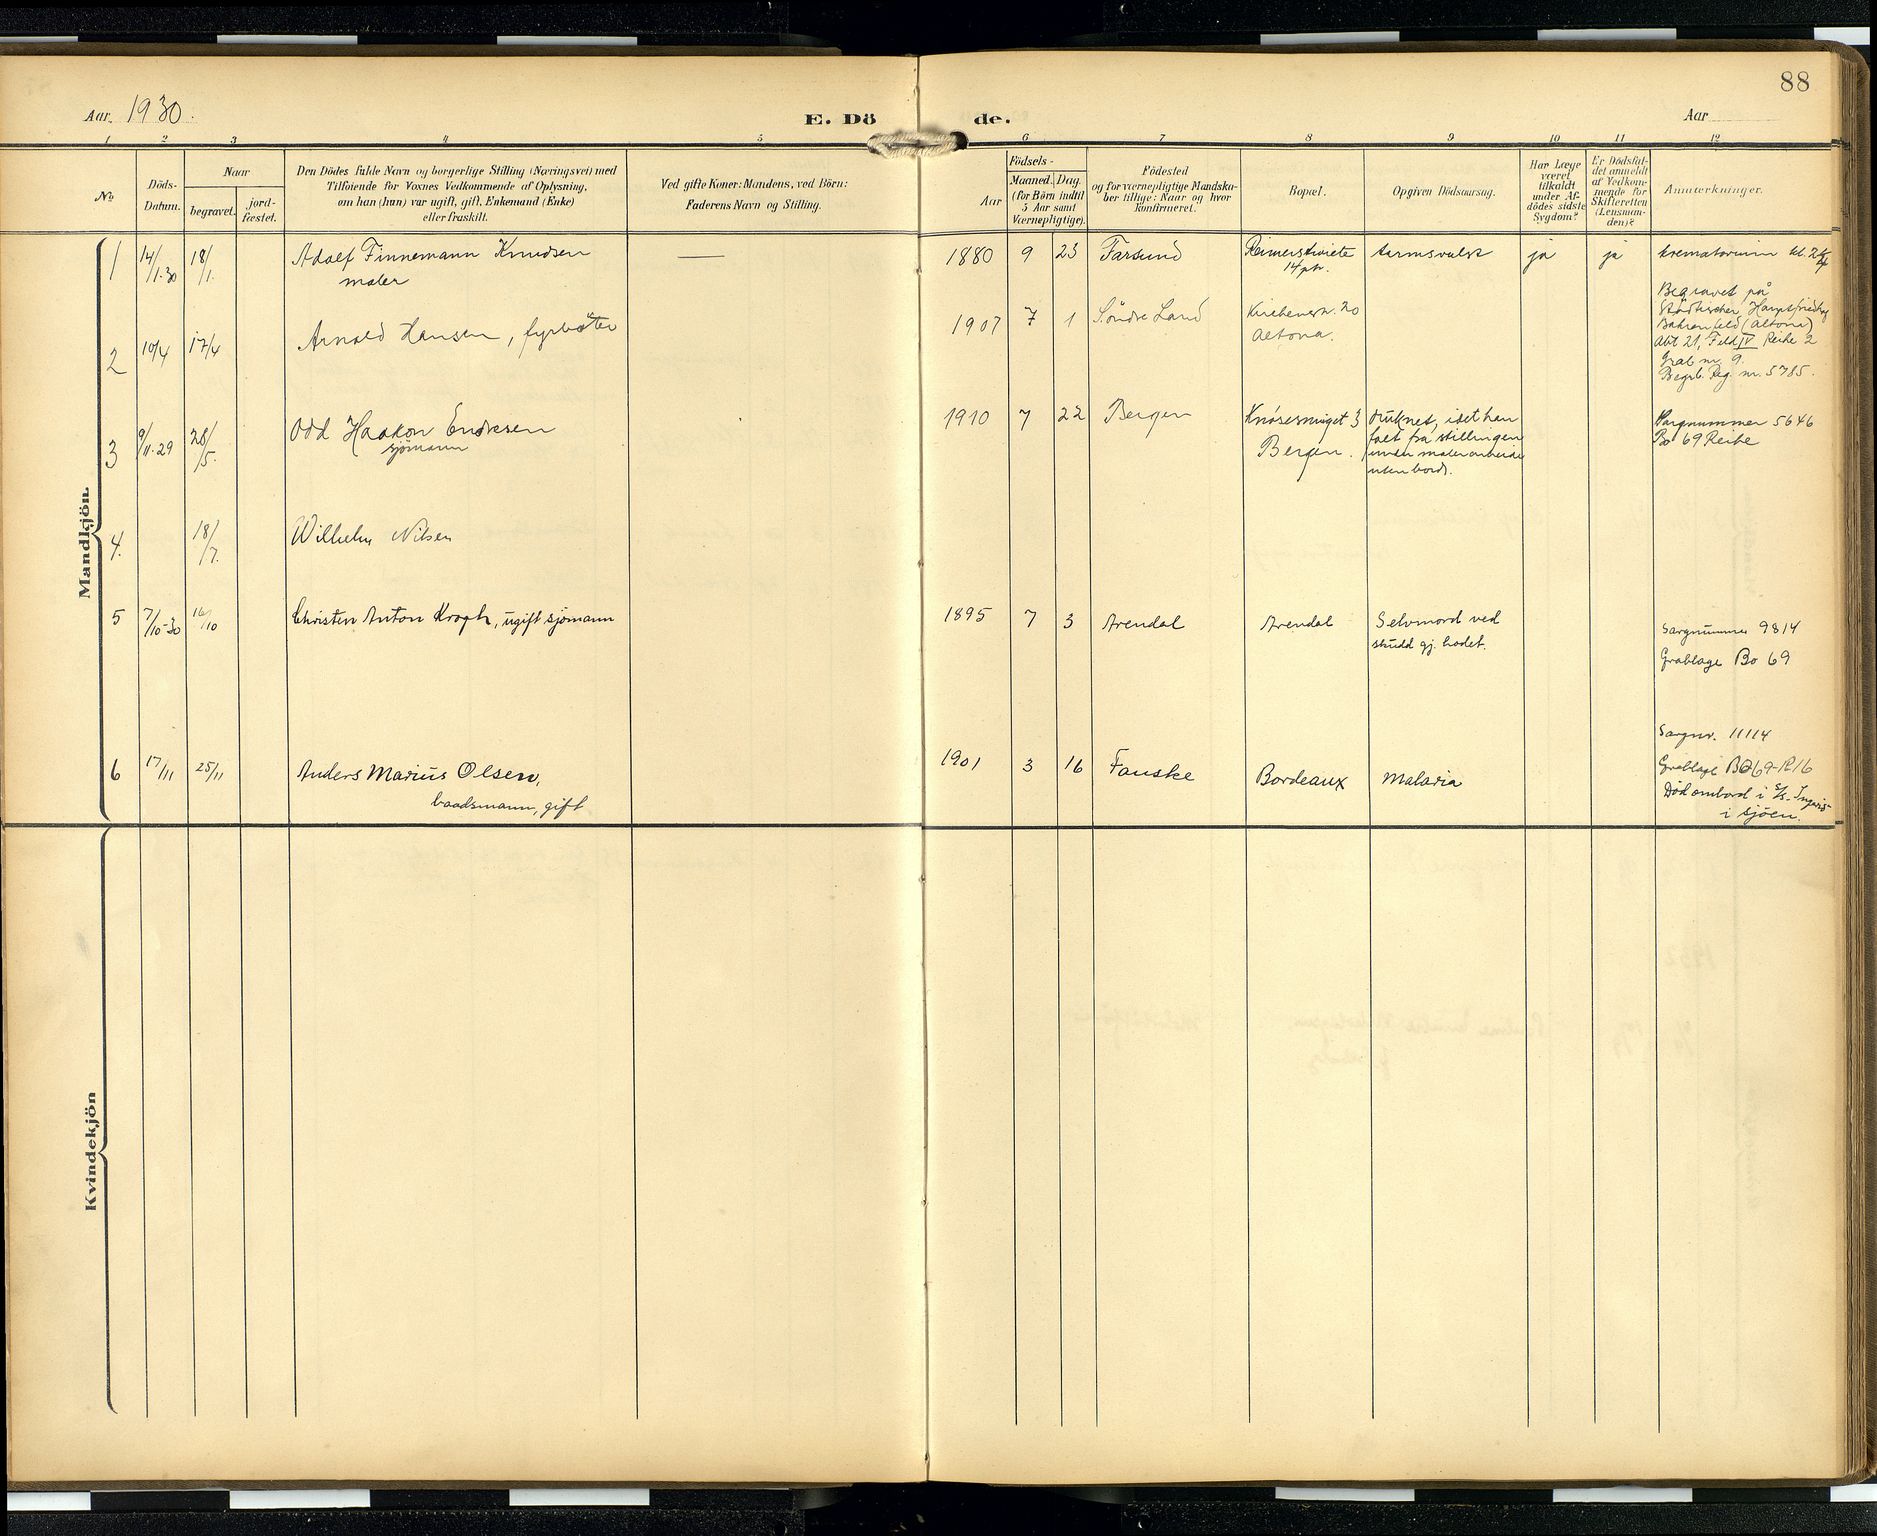 88
Aar. 1930.
E. Dö de.
Aar
1 2 3 4 5 6 7 8 9 10 11 12
No
Döds-
Datum.
Naar
begravet.
jord-
fæstet.
Den Dödes fulde Navn og borgerlige Stilling (Næringsvei) med
Tilföiende for Voxnes Vedkommende af Oplysning,
om han (hun) var ugift, gift, Enkemand (Enke)
eller fraskilt.
Ved gifte Koner: Mandens, ved Börn:
Faderens Navn og Stilling.
Födsels-
Aar
Maaned.
Dag.
(for Börn indtil
5 Aar samt
Værnepligtige).
Födested
og for værnepligtige Mandska-
ber tillige: Naar og hvor
konfirmeret.
Bopæl.
Opgiven Dödsaarsag.
Har Læge
været
tilkaldt
under Af-
dödes sidste
Sygdom?
Er Dödsfal-
det anmeldt
af Vedkom-
mende for
Skifteretten
(Lensman-
den)?
Anmærkninger.
Mandkjön.
1
14/1.30
18/1.
Adolf Finnemann Knudsen
maler
—
1880 9 23
Farsund
14 ptr.
ja
ja
krematorium kl. 2
2
10/4
17/4
Arnold Hansen, fyrbøter
1907 7 1
Söndre Land
20
Altona.
Begravet på
Städtischer
Bahrenfeld (Altona)
Abt 21, Feld IV Reihe 2
Grab nr. 9.
Begrb. Reg. nr. 5785.
3
9/11.29
28/5.
Odd Haakon Endresen
sjömann
1910 7 22
Bergen
Knösesmuget 3
Bergen.
druknet, idet han
falt fra stillingen
under malerarbeide
utenbords.
Sargnummer 5646
Bo 69 Reihe
4.
18/7.
Wilhelm Nilsen
5
7/10-30
16/10
Christen Anton Krogh, ugift sjömann
1895 7 3
Arendal
Arendal
Selvmord ved
skudd gj. hodet.
Sargnummer 9814
Grablage Bo 69
6
17/11
25/11
Anders Marius Olsen,
baadsmann, gift
1901 3 16
Fauske
Bordeaux
Malaria
Sargnr. 11114
Grablage Bo 69-R16
Död ombord i S/S.
i sjöen.
Kvindekjön